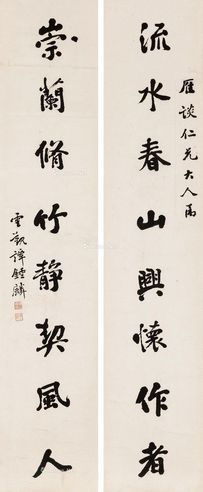 雁談仁兄大人屬
流水春山興懷作者
崇蘭脩竹靜契風人
雲覲譚鍾麟